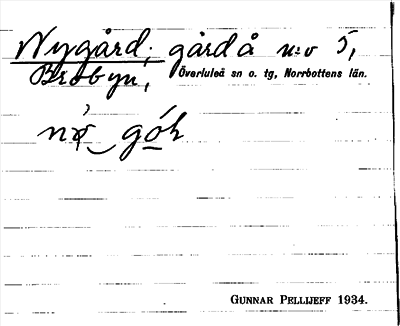 Nygård, gård å n:o 5,
Brobyn, Överluleå sn o. tg, Norrbottens län.
GUNNAR PELLIJEFF 1934.